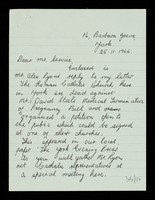 16, Barbara Grove
York
25.11.1966
Dear Mr. Lewis
Enclosed is
Mr Alex Lyons reply to my letter.
The Roman Catholic Church here
in York is dead against
Mr. David Steels Medical Termination
of Pregnancy Bill and have
organised a petition open to
the public which could be signed
at one of their churches.
This appeared in our local
paper the York Evening Press.
As you I will gather Mr Lyon
met Catholic representatives at
a special meeting here.